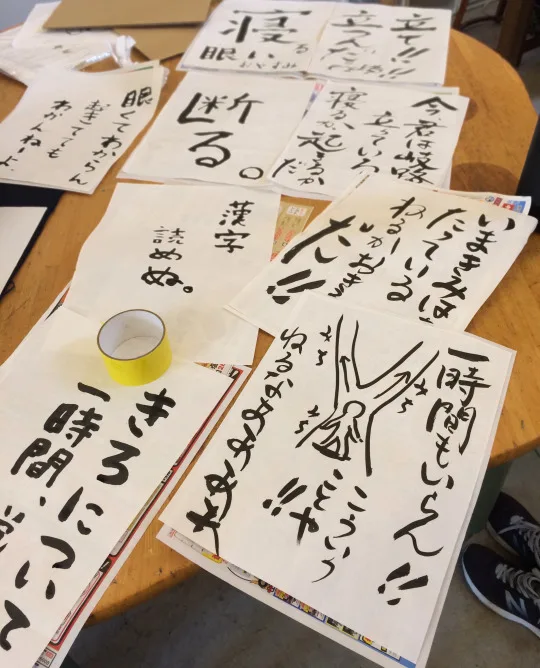 立て!!
立つんだ
寝る
眠い。
断る。
今、君は岐路
立っている
寝るか起きるか
だ
眠くてわからん
おきてても
わかんねーよ
漢字
読めぬ。
いまきみは
たっている
ねるー
かおきる
だ!!
一時間もいらん!!
きろ
きろ
きろ
こういう
ことや!!
ねるなあああああ
きろについて
一時間、